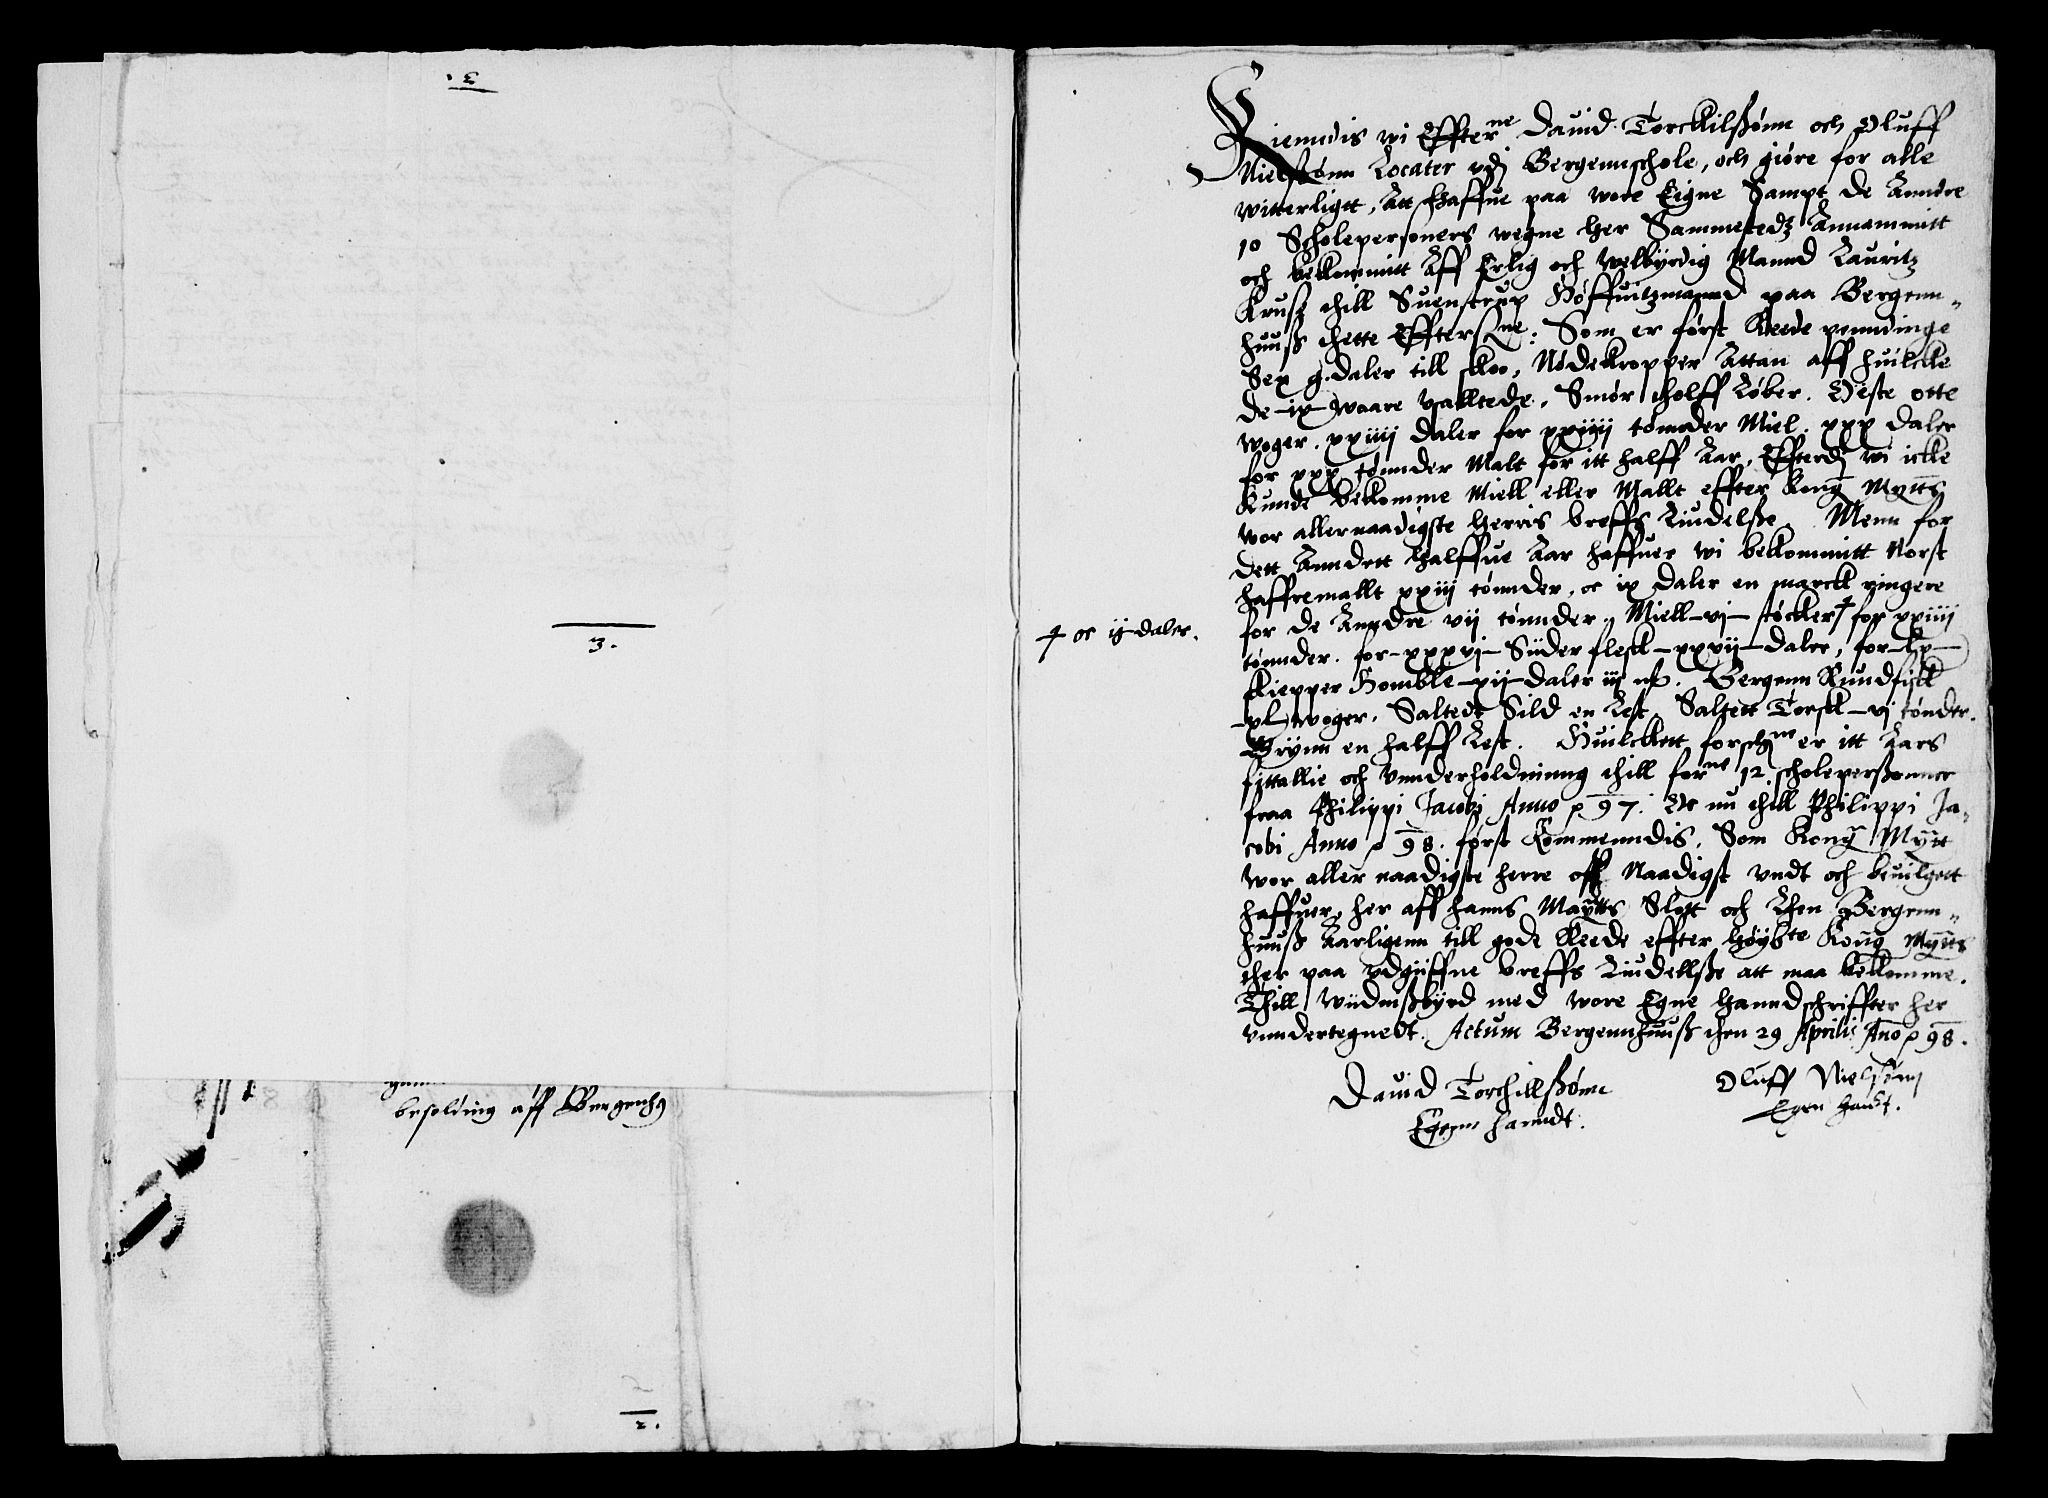 3.
3.
besolding aff Bergenhȝ
2.
Kiendis wi Effterne Dauid Torckilsßønn och Oluff
Nielsßønn Locater vdj Bergennschole, och giøre for alle
witterligtt, Att Haffue paa wore Eigne Sampt de Anndre
10 Scholepersoners wegne her Sammestedtz Annammitt
och bekommitt Aff Erlig och welbyrdig Mannd Lauritz
Krusz thill Suenstrup Høffuitzmannd paa Bergenn„
huuß thette Effterschne: Som er først Reede penndinge
Sex g. daler till skoo, Nødekropper Attan aff huilcke
de ix waare vsalltede. Smør tholff Løber. Oeste otte
woger. xxiiij daler for xxiiij tønnder Miel. xxx daler
for xxx tønnder Malt for itt halff Aar, Effterdj wi icke
kunde bekomme Miell eller Mallt effter Kong Mytts
wor allernaadigste herris breffs Liudelße. Menn for
dett Anndett Halffue Aar haffuer wi bekommitt Norst
haffremallt xxiij tønnder, oc ix daler en marck ringere
for de Anndre vij tønnder, Miell vj støcker ┼ for xxiiij
┼ oc ij daler.
tønnder. for xxxvj Siider flesk xxvij daler, for lx
skiepper Homble xij daler iij mß. Bergenn Rundfisk
xl woger. Saltedt Sild en Lest. Saltett Torsk vj tønder.
Grynn en halff Lest. Huilckett forschne er itt Aars
fittallie och Vnnderholdninng thill forne 12. scholepersonner
fraa Philippi Jacobj Anno p 97. Oc nu thill Philippi Ja„
cobi Anno p 98. først Kommenndis. Som Kong Mytt
wor aller naadigste herre oss Naadigst vndt och beuilgett
haffuer, her aff hanns Maytts Slott och Lhen Bergenn„
huuß Aarligenn till gode Rede effter høybte Kong Mytts
ther paa vdgiiffne breffs Liudellße att maa bekomme.
Thill Wiidnißbyrd med wore Egne Hanndschriffter her
vnndertegnedt. Actum Bergennhuuß then 29 Aprilis Ano p 98.
Dauid Torchillßønn
Egenn hanndt.
Oluff Nielsønn
Egen Handt.